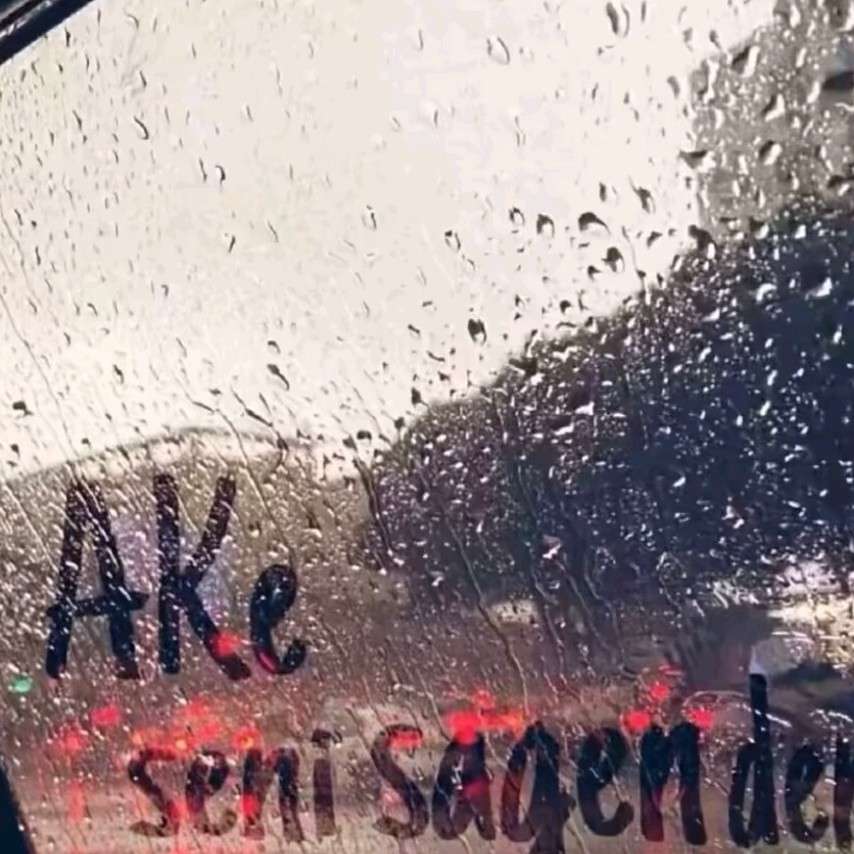 AKe
seni sagen der